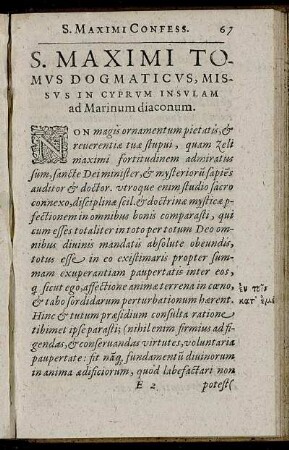 S. MAXIMI CONFESS. 67
S. MAXIMI TO-
MVS DOGMATICVS, MIS-
SVS IN CYPRVM INSVLAM
ad Marinum diaconum.
NON magis ornamentum pietatis, &
reuerentiæ tuæ stupui, quam zeli
maximi fortitudinem admiratus
sum, sancte Dei minister, & mysteriorũ sapiẽs
auditor & doctor. vtroque enim studio sacro
connexo, disciplinæ scil. & doctrinæ mysticæ p-
fectionem in omnibus bonis comparasti, qui
cum esses totaliter in toto per totum Deo om-
nibus diuinis mandatis absolute obeundis,
totus esse in eo existimaris propter sum-
mam exuperantiam paupertatis inter eos,
q sicut ego, affectione animæ terrena in cœno,
& tabo sordidarum perturbationum hærent.
ἐν τοῖς
κατ' ἐμὲ
Hinc & tutum præsidium consulta ratione
tibimet ipse parasti; (nihil enim firmius ad fi-
gendas, & conseruandas virtutes, voluntaria
paupertate: fit nãq, fundamentũ diuinorum
in anima ædificiorum, quod labefactari non
E 2 potest(